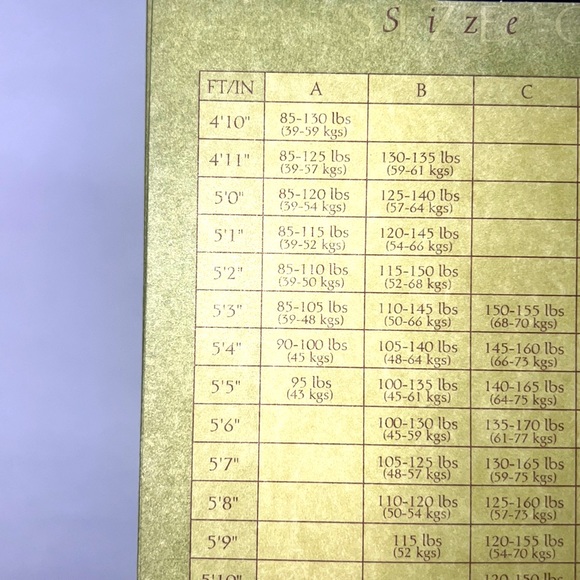 Size
FT/IN A B C
4'10" 85-130 lbs
(39-59 kgs)
4'11" 85-125 lbs 130-135 lbs
(39-57 kgs) (59-61 kgs)
5'0" 85-120 lbs 125-140 lbs
(39-54 kgs) (57-64 kgs)
5'1" 85-115 lbs 120-145 lbs
(39-52 kgs) (54-66 kgs)
5'2" 85-110 lbs 115-150 lbs
(39-50 kgs) (52-68 kgs)
5'3" 85-105 lbs 110-145 lbs 150-155 lbs
(39-48 kgs) (50-66 kgs) (68-70 kgs)
5'4" 90-100 lbs 105-140 lbs 145-160 lbs
(45 kgs) (48-64 kgs) (66-73 kgs)
5'5" 95 lbs 100-135 lbs 140-165 lbs
(43 kgs) (45-61 kgs) (64-75 kgs)
5'6" 100-130 lbs 135-170 lbs
(45-59 kgs) (61-77 kgs)
5'7" 105-125 lbs 130-165 lbs
(48-57 kgs) (59-75 kgs)
5'8" 110-120 lbs 125-160 lbs
(50-54 kgs) (57-73 kgs)
5'9" 115 lbs 120-155 lbs
(52 kgs) (54-70 kgs)
5'10" 120-150 lbs